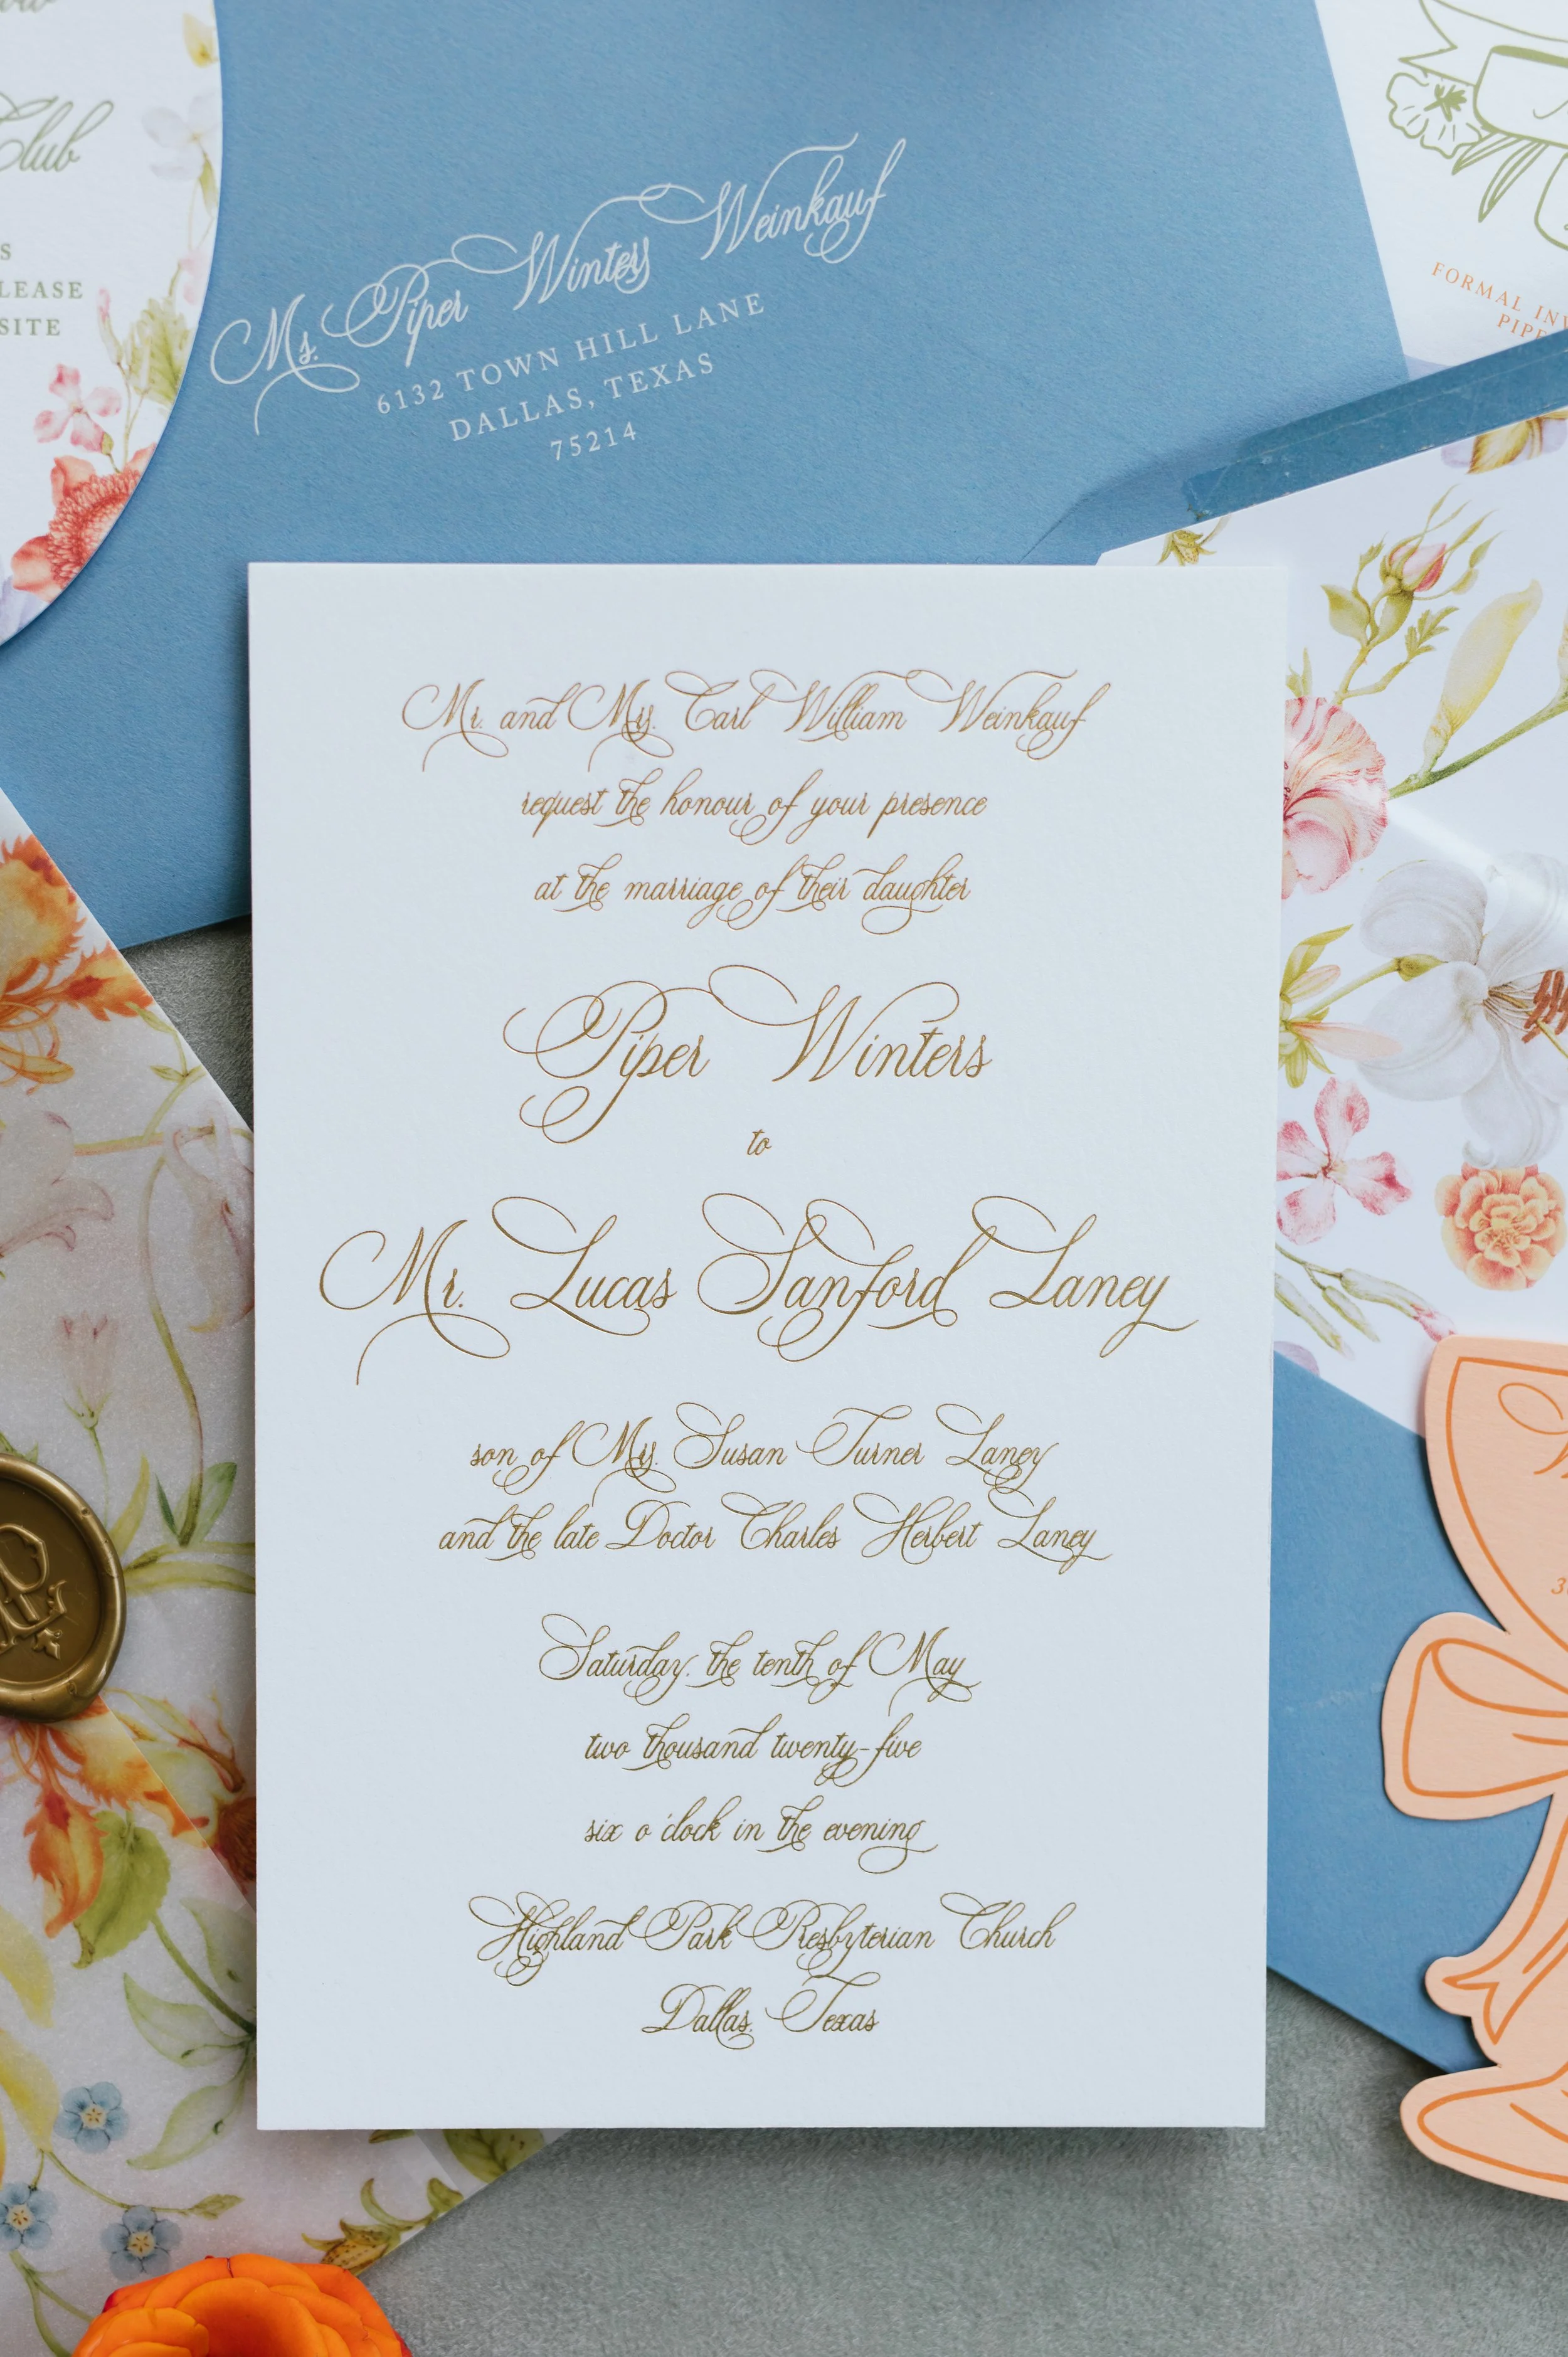 Club
S
LEASE
SITE
Ms. Piper Winters Weinkauf
6132 TOWN HILL LANE
DALLAS, TEXAS
75214
FORMAL
Mr. and Mrs. Carl William Weinkauf
request the honour of your presence
at the marriage of their daughter
Piper Winters
to
Mr. Lucas Sanford Laney
son of Mrs. Susan Turner Laney
and the late Doctor Charles Herbert Laney
Saturday, the tenth of May
two thousand twenty-five
six o'clock in the evening
Highland Park Presbyterian Church
Dallas, Texas